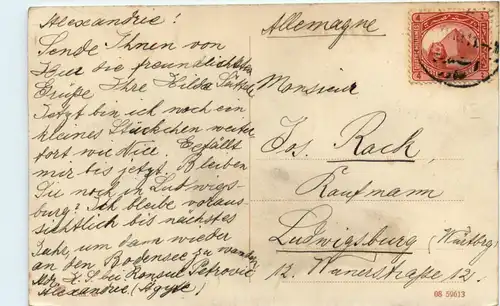 Alexandrie!
Sende Ihnen von
hier die freundlichsten
Grüße Ihre Hilda
Jetzt bin ich noch ein
kleines Stückchen weiter
fort wie Nice. Gefällt
mir bis jetzt. Bleiben
Sie noch in Ludwigs-
burg? Ich bleibe voraus-
sichtlich bis nächstes
Jahr, um dann wieder
an den Bodensee zu wandern
Adr. H. S. bei Konsul Petrovic
Alexandrie (Ägypt.)
Allemagne
Monsieur
Jos. Rack,
Kaufmann
Ludwigsburg (Württbrg.)
12. 12.
08 59613